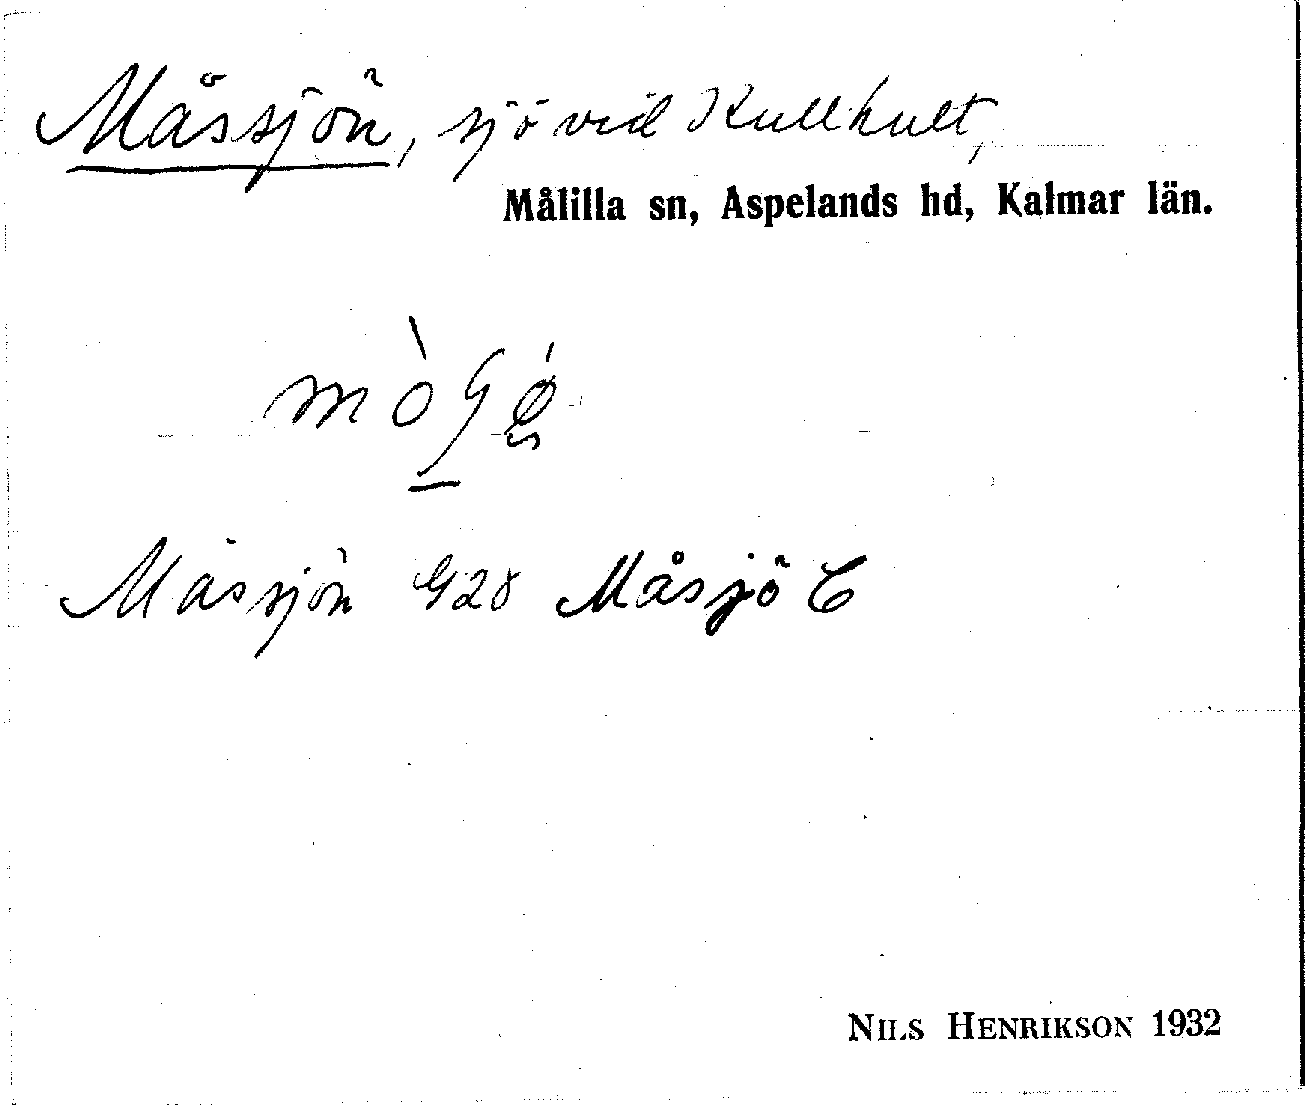 Måssjön, sjö vid Kullhult,
Målilla sn, Aspelands hd, Kalmar län.
Måssjön G28 Måsjö C
NILS HENRIKSON 1932